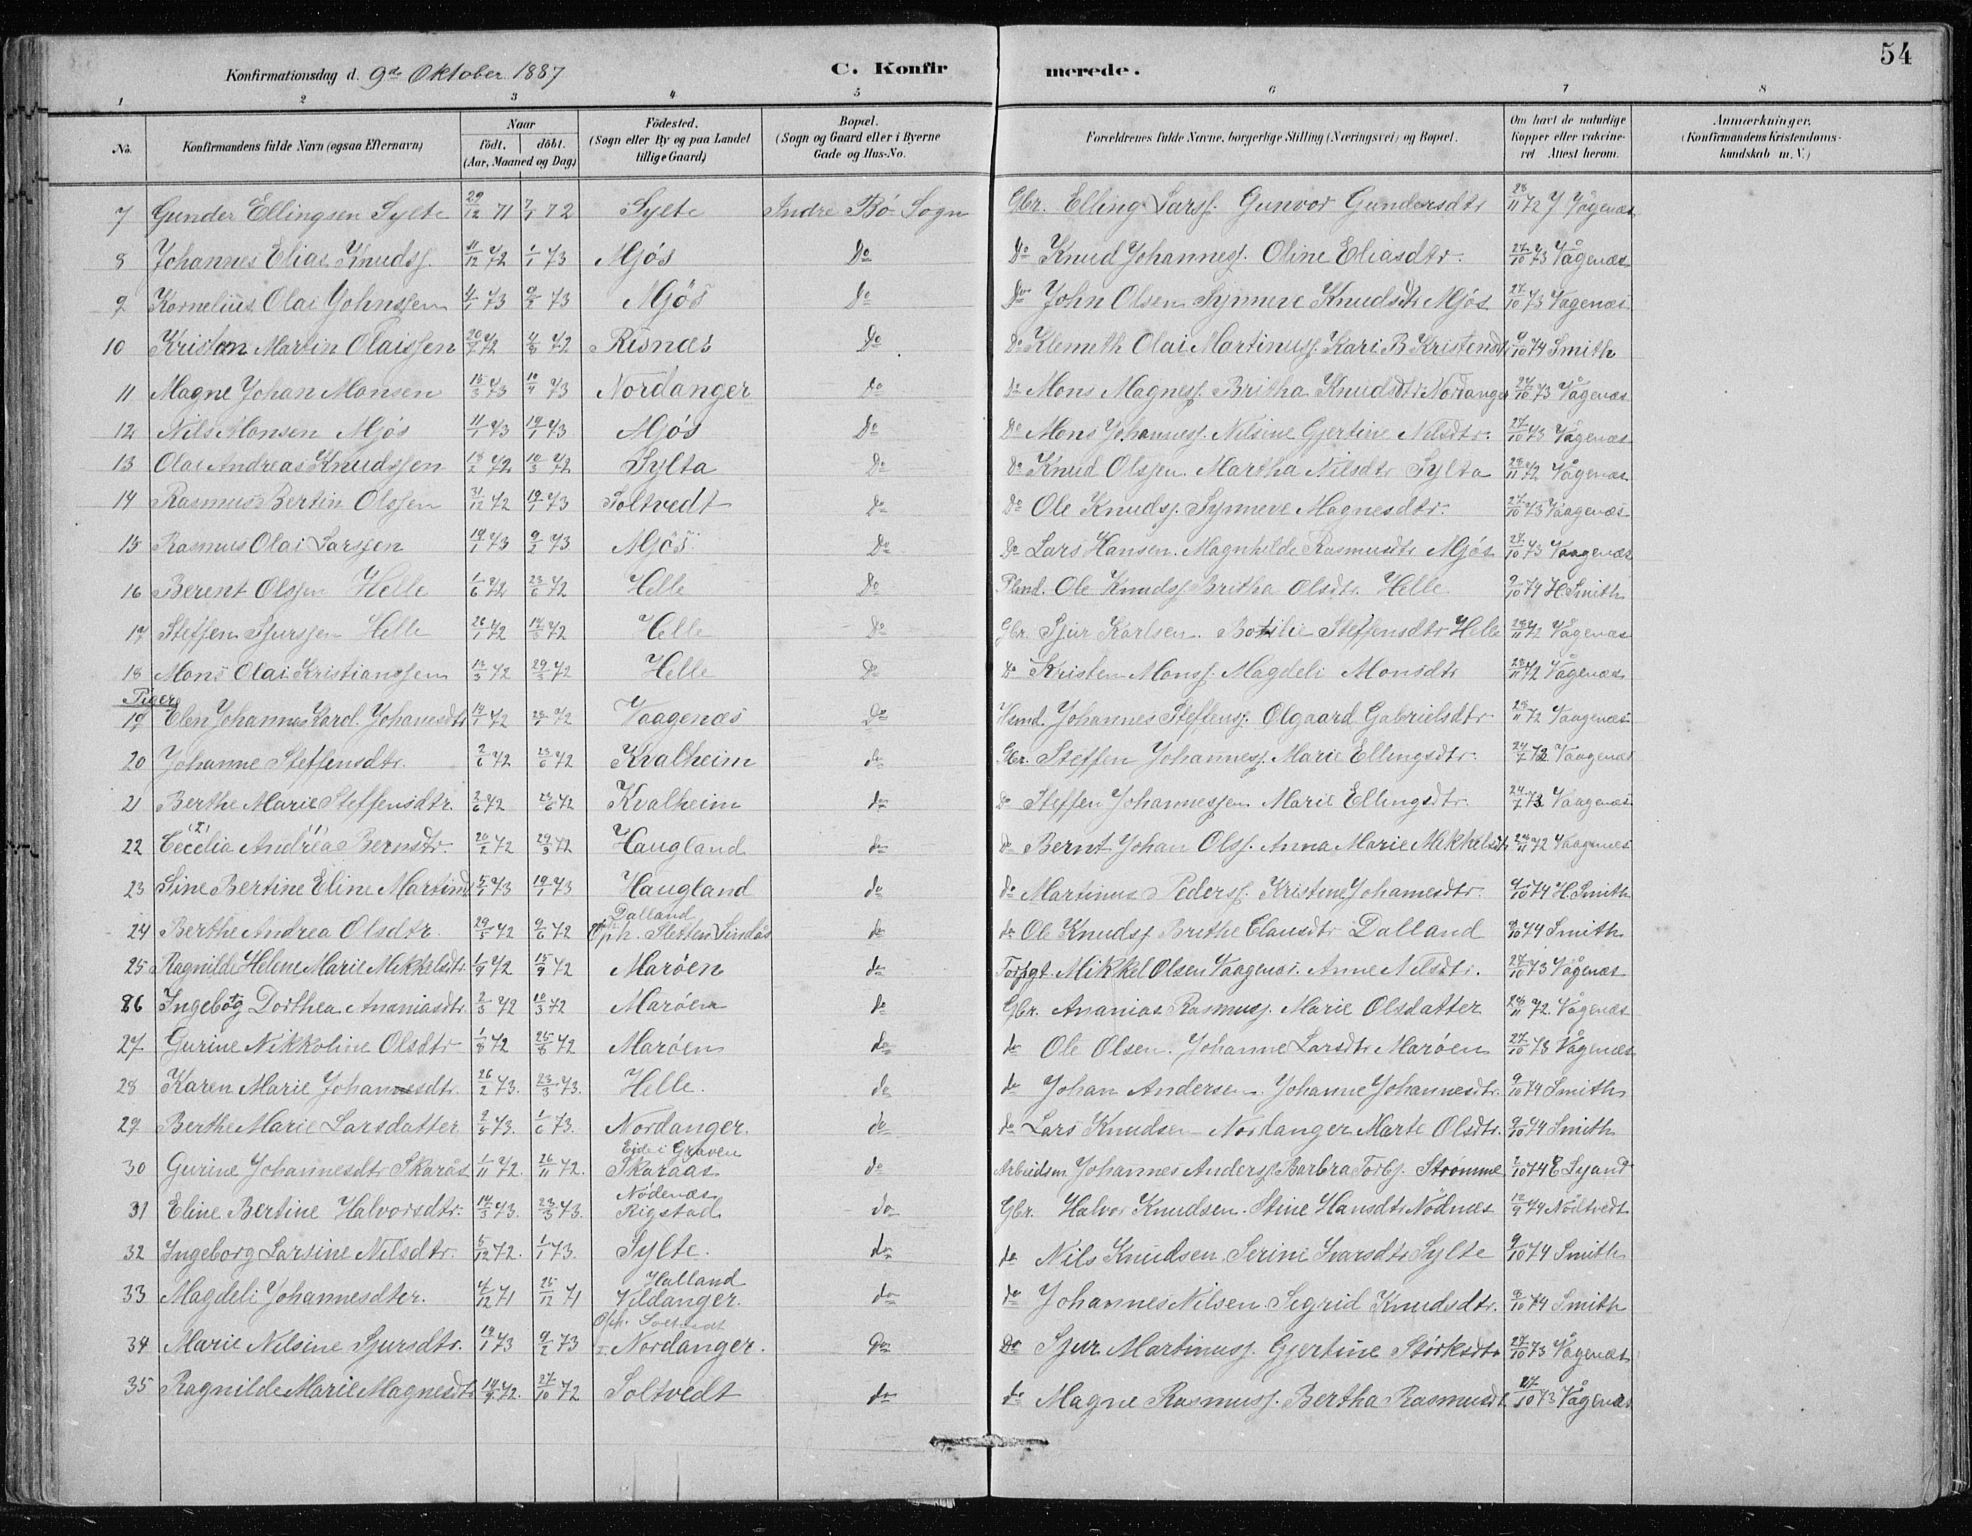 54
Konfirmationsdag d. 9de Oktober 1887 C. Konfirmerede.
1 2 3 4 5 6 7 8
No. Konfirmandens fulde Navn (ogsaa Efternavn) Naar födt. döbt. (Aar, Maaned og Dag) Födested. (Sogn eller By og paa Landet tillige Gaard) Bopæl. (Sogn og Gaard eller i Byerne Gade og Hus-No. Forældrenes fulde Navne, borgerlige Stilling (Næringsvei) og Bopæl. Om havt de naturlige Kopper eller vakcineret Attest herom. Anmærkninger. (Konfirmandens Kristendomskundskab m. V.)
7 Gunder Ellingsen Sylte 29/12 71 7/1 72 Sylte Indre Bö Sogn Gbr. Elling Larss. Gunvor Gundersdtr 28/11 72 J Vågenæs
8 Johannes Elias Knudss. 11/12 72 1/1 73 Mjós Do Do Knud Johanness. Oline Eliasdtr. 27/10 73 Vågenæs
9 Kornelius Olai Johnssen 4/1 73 9/2 73 Mjós Do Do John Olsen Synneve Knudsdtr Mjós 27/10 73 Vagenæs
10 Kristen Martin Olaissen 20/7 72 4/8 72 Risnæs Do Do Klemeth Olai Martinuss. Kari B Kristensdtr 9/10 74 Smith
11 Magne Johan Monsen 15/3 73 10/4 73 Nordanger Do Do Mons Magness. Britha Knudsdtr Nordanger 27/10 73 Vågenæs
12 Nils Monsen Mjós 11/1 73 19/1 73 Mjós Do Do Mons Johanness. Nilsine Gjertine Nilsdtr. 27/10 73 Vågenæs
13 Olai Andreas Knudssen 13/2 72 10/3 72 Sylta Do Do Knud Olssen Martha Nilsdtr Sylta 28/11 72 Vågenæs
14 Rasmus Bertin Olssen 31/12 72 19/1 73 Soltvedt Do Do Ole Knudss. Synneve Magnesdtr. 27/10 73 Vaagenæs
15 Rasmus Olai Larssen 19/1 73 9/2 73 Mjós Do Do Lars Hansen. Magnhilde Rasmusdtr Mjós 27/10 73 Vaagenæs
16 Berent Olssen Helle 1/6 72 23/6 72 Helle Do Plmd. Ole Knudss Britha Olsdtr. Helle 9/10 74 H Smith
17 Steffen Sjurssen Helle 26/1 72 17/3 72 Helle Do Gbr. Sjur Karlsen. Botilie Steffensdtr Helle 28/11 72 Vågenæs
18 Mons Olai Kristianssen 13/3 72 29/3 72 Helle Do Do Kristen Monss. Magdeli Monsdtr 28/11 72 Vågenæs
Piger
19 Elen Johannes Gard. Johannsdtr 14/1 72 28/1 72 Vaagenæs Do Hsmd. Johannes Steffens. Olgaard Gabrielsdtr 28/11 72 Vaagenæs
20 Johanne Steffensdtr. 2/6 72 23/6 72 Kvalheim do Gbr. Steffen Johanness. Marie Ellingsdtr. 24/7 72 Vaagenæs
21 Berthe Marie Steffensdtr. 2/6 72 23/6 72 Kvalheim do Do Steffen Johannessen Marie Ellingsdtr. 24/7 72 Vaagenæs
22 Cecelia Andrea Bernstr. 20/2 72 29/3 72 Haugland do Do Bernt Johan Olss. Anna Marie Mikkelsdtr 28/11 72 Vaagenæs
23 Sine Bertine Eline Martinsd 5/1 73 19/1 73 Haugland do do Martinus Peders. Kristene Johannesdtr. 9/10 74 H. Smith
24 Berthe Andrea Olsdtr. 29/5 72 9/6 72 Dalland Oph. Sletten Lindås do do Ole Knudss Brithe Clausdtr Dalland 9/10 74 Smith
25 Ragnilde Helene Marie Mikkelsdtr. 1/9 72 15/9 72 Maröen do Torpgt. Mikkel Olsen Vaagenæs. Anne Nilsdtr. 27/10 73 Vågenæs
86 Ingeborg Dorthea Ananiasdtr. 2/3 72 10/3 72 Maröen do Gbr. Ananias Rasmuss. Marie Olsdatter 28/11 72 Vågenæs
27 Gurine Nikkoline Olsdtr 1/8 72 25/8 72 Maröen do do Ole Olsen. Johanne Larsdtr Maröen 27/10 73 Vågenæs
28 Karen Marie Johannesdtr. 26/2 73. 23/3 73. Helle. do do Johan Andersen. Johanne Johannesdtr. 9/10 74 Smith
29 Berthe Marie Larsdatter 9/5 73. 1/6 73. Nordanger. do do Lars Knudsen Nordanger Marte Olsdtr. 9/10 74 Smith
30 Gurine Johannesdtr Skarås 1/11 72. 26/11 72. Eide i Graven Skaraas do Arbeidsm. Johannes Anderss Barbra Torbs. Strømme 2/10 74 E
31 Eline Bertine Halvorsdtr. 14/3 73. 23/3 73. Nödenæs Rigstad do Gbr. Halvor Knudsen. Stine Hansdtr Nödnæs 12/9 74 Nöltvedt
32 Ingeborg Larsine Nilsdtr. 5/12 72. 1/1 73. Sylte. do do Nils Knudsen Serine Ivarsdtr Sylte 9/10 74 Smith
33 Magdeli Johannesdter. 4/12 71 25/12 71 Halland Vildanger. do do Johannes Nilsen Sigrid Knudsdtr. 9/10 74 Smith
34 Marie Nilsine Sjursdtr. 19/1 73 9/2 73 Oph. Soltvedt Nordanger. Do Do Sjur Martinuss. Gjertine Störksdtr 27/10 73 Vågenæs
35 Ragnilde Marie Magnesdtr 14/9 72. 27/10 72 Soltvedt do do Magne Rasmuss. Bertha Rasmusdt. 27/10 73 Vågenæs